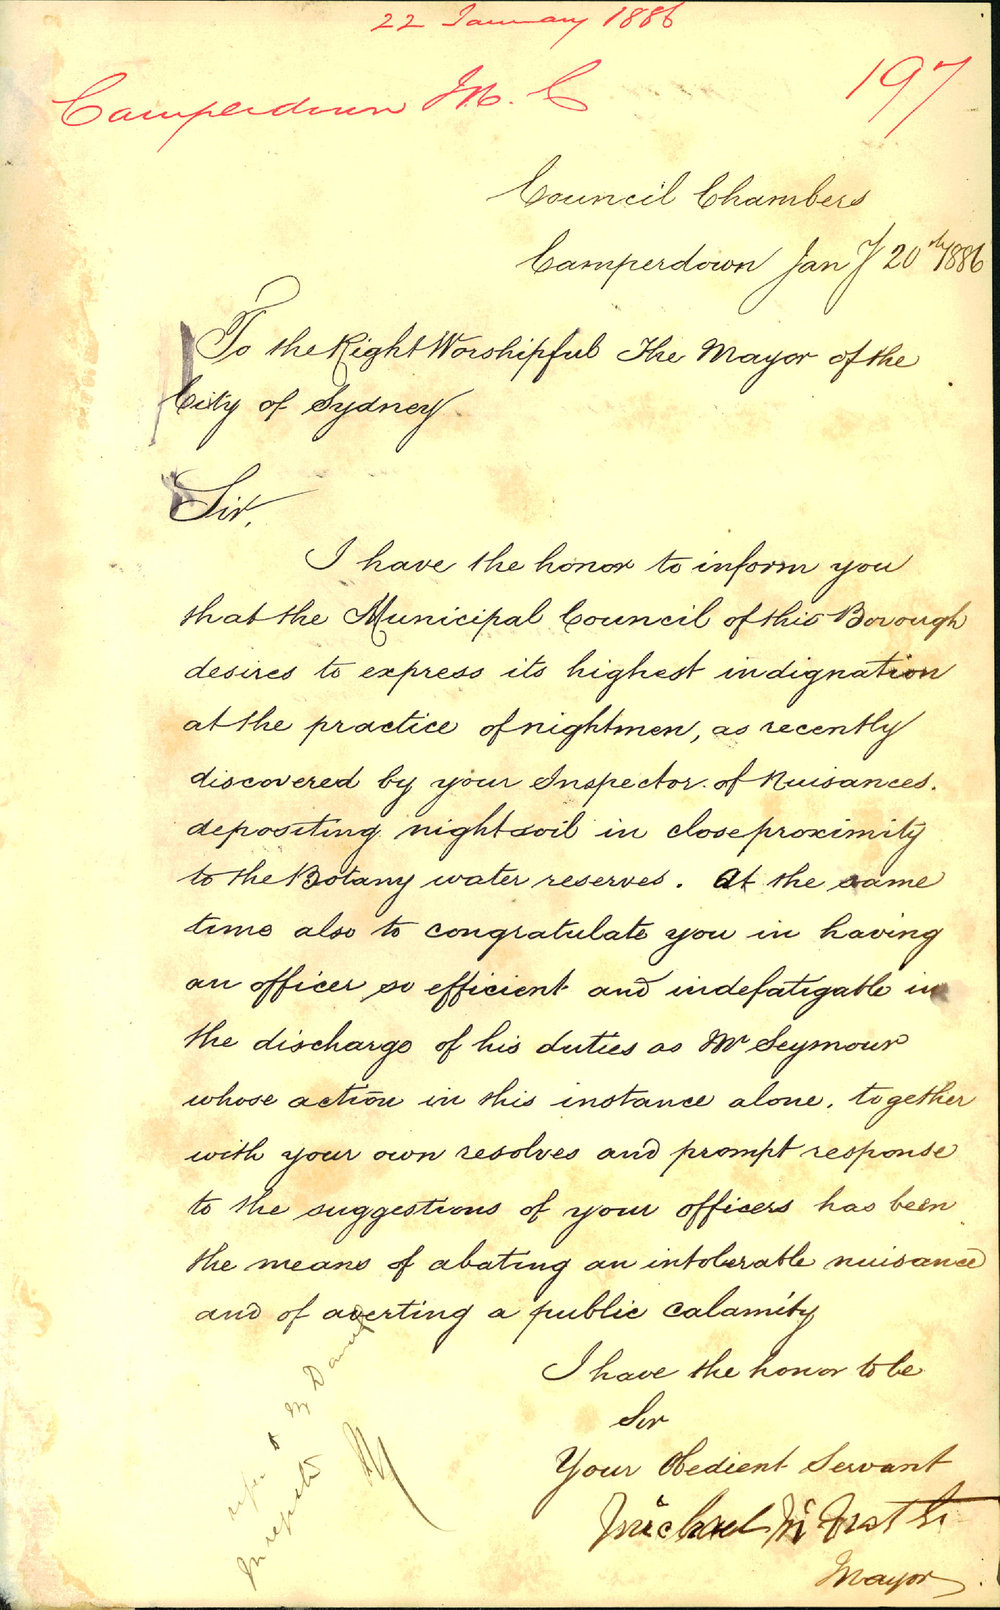 22 January 1886
Camperdown M. C
197
Council Chambers
Camperdown Jany 20th 1886
To the Right Worshipful The Mayor of the
City of Sydney
Sir,
I have the honor to inform you
that the Municipal Council of this Borough
desires to express its highest indignation
at the practice of nightmen, as recently
discovered by your Inspector of Nuisances.
depositing nightsoil in close proximity
to the Botany water reserves. At the same
time also to congratulate you in having
an officer so efficient and indefatigable in
the discharge of his duties as Mr Seymour
whose action in this instance alone, together
with your own resolves and prompt response
to the suggestions of your officers has been
the means of abating an intolerable nuisance
and of averting a public calamity
I have the honor to be
Sir
Your Obedient Servant
Michael
Mayor